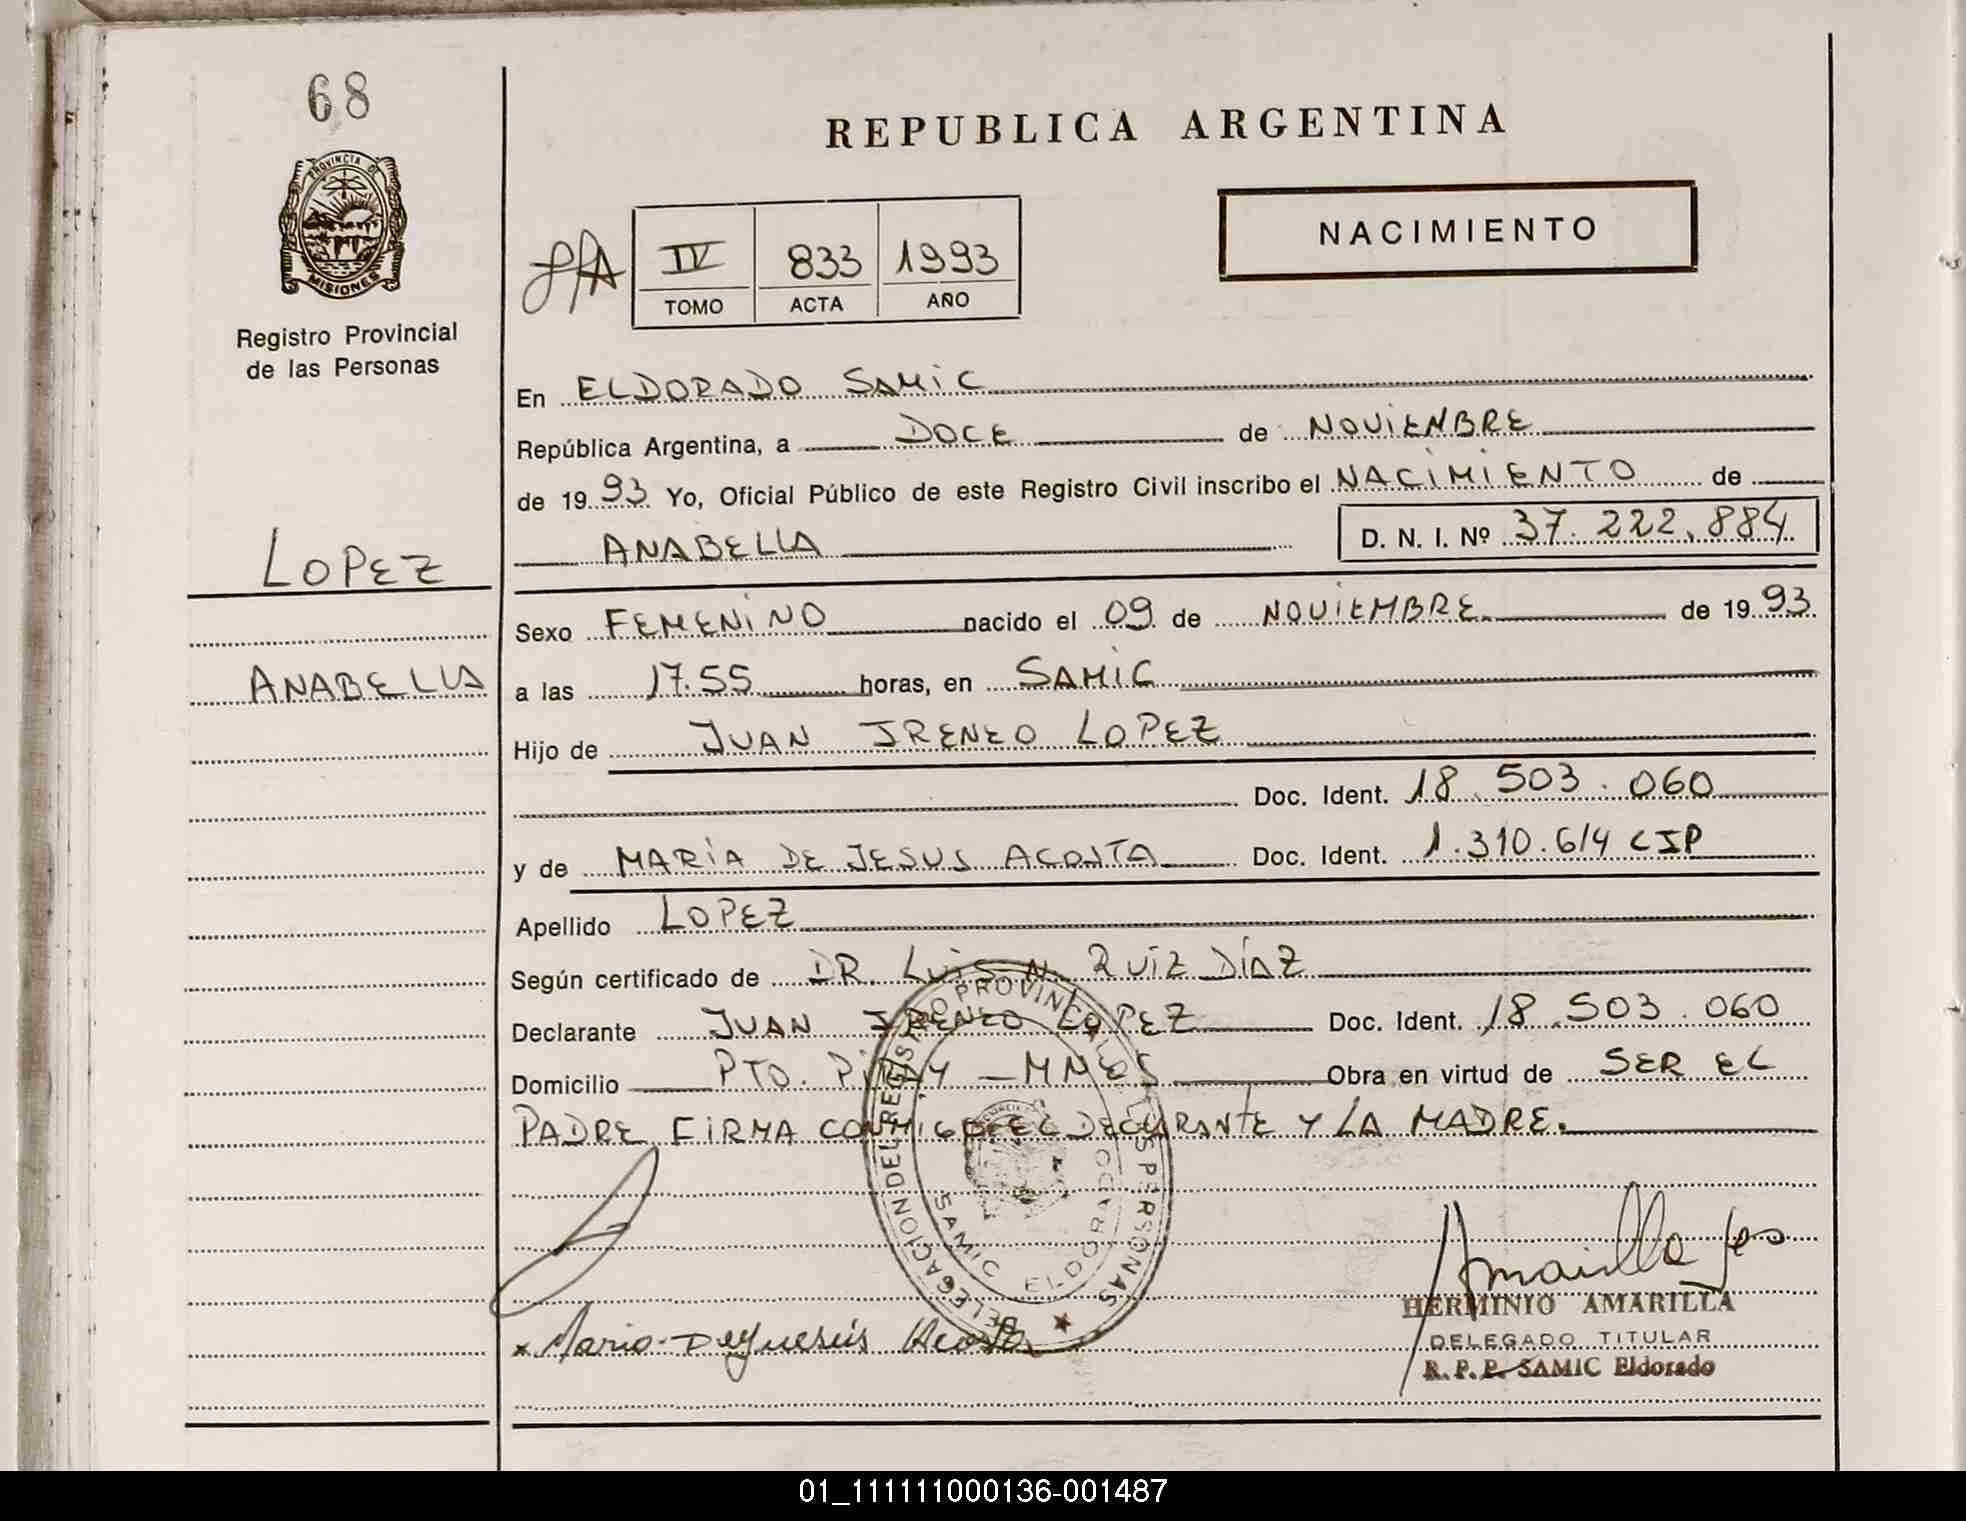 68
PROVINCIA DE
MISIONES
Registro Provincial
de las Personas
LOPEZ
ANABELLA
REPUBLICA ARGENTINA
NACIMIENTO
IV 833 1993
TOMO ACTA AÑO
En ELDORADO SAMIC
República Argentina, a DOCE de NOVIEMBRE
de 1993 Yo, Oficial Público de este Registro Civil inscribo el NACIMIENTO de
ANABELLA D. N. I. Nº 37.222.884
Sexo FEMENINO nacido el 09 de NOVIEMBRE. de 1993
a las 17.55 horas, en SAMIC
Hijo de JUAN IRENEO LOPEZ
Doc. Ident. 18.503.060
y de MARIA DE JESUS ACOSTA Doc. Ident. 1.310.614 CIP
Apellido LOPEZ
Según certificado de DR. LUIS N. RUIZ DÍAZ
Declarante JUAN IRENEO LOPEZ Doc. Ident. 18.503.060
Domicilio PTO. PIRAY - MNES Obra en virtud de SER EL
PADRE, FIRMA CONMIGO EL DECLARANTE Y LA MADRE.
DELEGACION DEL REGISTRO PROVINCIAL DE LAS PERSONAS
SAMIC ELDORADO
Amarilla
HERMINIO AMARILLA
DELEGADO TITULAR
R. P. P. SAMIC Eldorado
x Maria Deyuesús Acosta
01_111111000136-001487